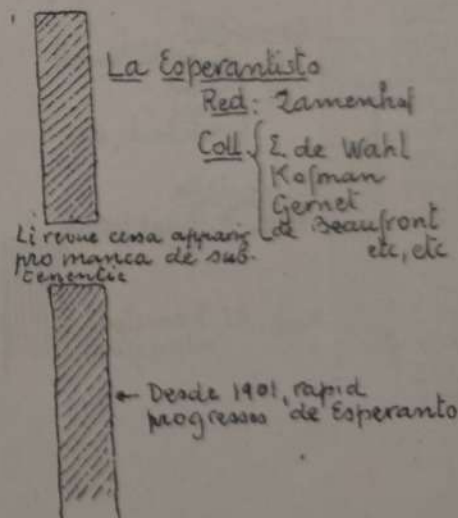 La Esperantisto
Red: Zamenhof
Coll
E. de Wahl
Kofman
Gernet
de Beaufront
etc, etc
Li revue cessa apparir
pro manca de sub-
Desde 1901, rapid
progresses de Esperanto